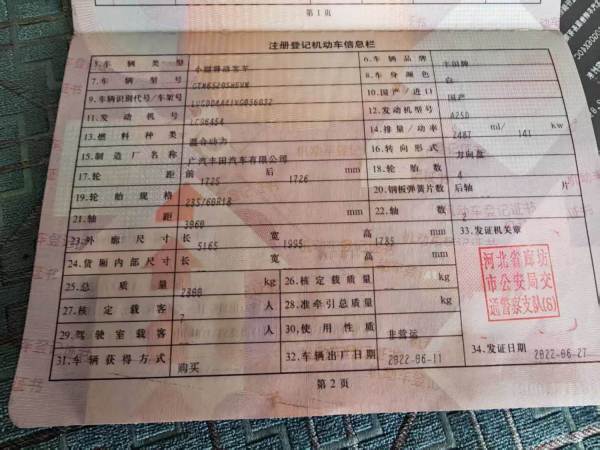 第1页
注册登记机动车信息栏
5.车辆类型 小型普通客车 6.车辆品牌 丰田牌
7.车辆型号 8.车身颜色 白
9.车辆识别代号/车架号 10.国产/进口 国产
11.发动机号 12.发动机型号 A25D
13.燃料种类 混合动力 14.排量/功率 2487 ml/ 141 kw
15.制造厂名称 广汽丰田汽车有限公司 16.转向形式 方向盘
17.轮距 前 1725 后 1726 mm 18.轮胎数 4
19.轮胎规格 235/60R18 20.钢板弹簧片数 后轴 片
21.轴距 3060 mm 22.轴数 2
23.外廓尺寸 长 5165 宽 1995 高 1785 mm 33.发证机关章
24.货厢内部尺寸 长 宽 高 mm
25.总质量 2800 kg 26.核定载质量 kg
27.核定载客 7 人 28.准牵引总质量 kg
29.驾驶室载客 人 30.使用性质 非营运
31.车辆获得方式 购买 32.车辆出厂日期 2022-06-11 34.发证日期 2022-06-27
河北省廊坊
市公安局交
通警察支队(6)
第2页